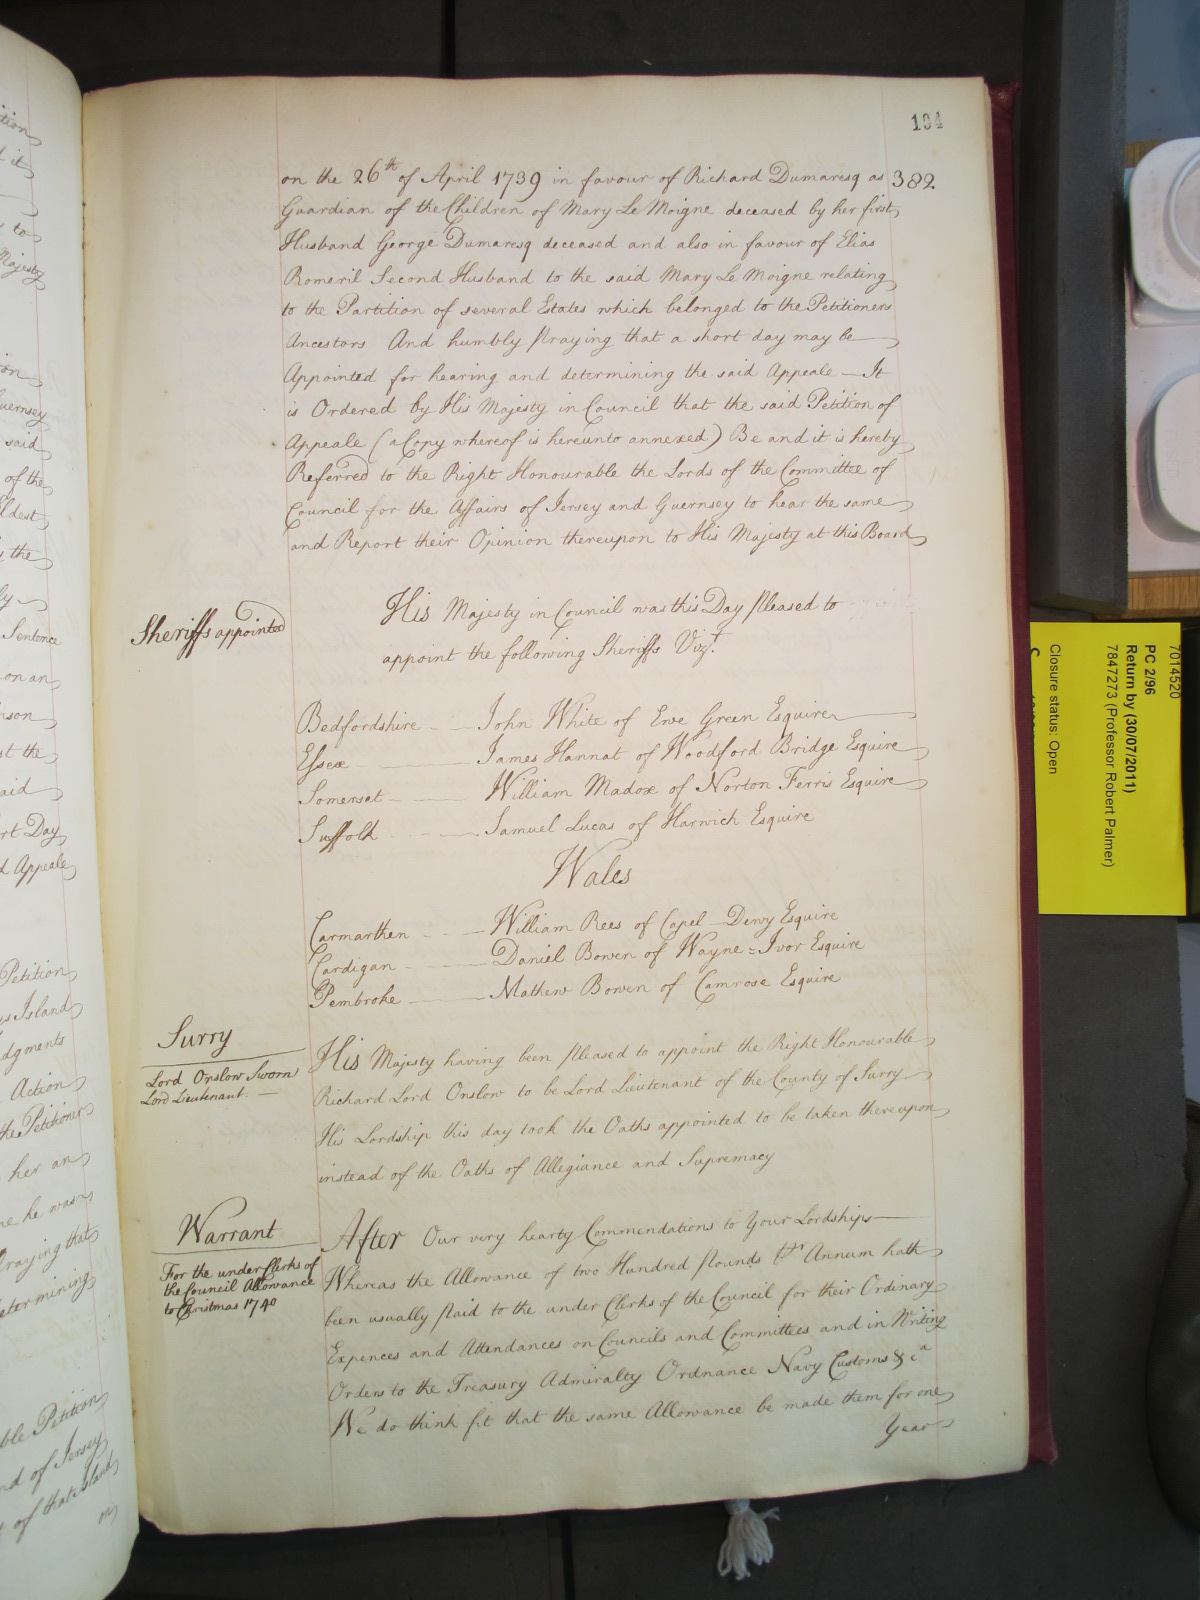 194
382
on the 26th of April 1739 in favour of Richard Dumaresq as
Guardian of the Children of Mary Le Moigne deceased by her first
Husband George Dumaresq deceased and also in favour of Elias
Romeril Second Husband to the said Mary Le Moigne relating
to the Partition of several Estates which belonged to the Petitioners
Ancestors And humbly praying that a short day may be
Appointed for hearing and determining the said Appeale — It
is Ordered by His Majesty in Council that the said Petition of
Appeale (a Copy whereof is hereunto annexed) Be and it is hereby
Referred to the Right Honourable the Lords of the Committee of
Council for the Affairs of Jersey and Guernsey to hear the same
and Report their Opinion thereupon to His Majesty at this Board
Sheriffs appointed
His Majesty in Council was this Day pleased to
appoint the following Sheriffs Vizt.
Bedfordshire — John White of Ewe Green Esquire
Essex — James Hannat of Woodford Bridge Esquire
Somerset — William Madox of Norton Ferris Esquire
Suffolk — Samuel Lucas of Harwich Esquire
Wales
Carmarthen — William Rees of Capel Dewy Esquire
Cardigan — Daniel Bowen of Wayne=Ivor Esquire
Pembroke — Mathew Bowen of Camrose Esquire
Surry
Lord Onslow Sworn
Lord Lieutenant. —
His Majesty having been pleased to appoint the Right Honourable
Richard Lord Onslow to be Lord Lieutenant of the County of Surry
His Lordship this day took the Oaths appointed to be taken thereupon
instead of the Oaths of Allegiance and Supremacy
Warrant
For the under Clerks of
the Council Allowance
to Christmas 1740
After Our very hearty Commendations to Your Lordships —
Whereas the Allowance of two Hundred pounds Pr Annum hath
been usually paid to the under Clerks of the Council for their Ordinary
Expences and Attendances on Councils and Committees and in Writing
Orders to the Treasury Admiralty Ordnance Navy Customs &ca
We do think fit that the same Allowance be made them for one
Year
7014520
PC 2/96
Return by (30/07/2011)
7847273 (Professor Robert Palmer)
Closure status: Open
tion
it
to
Majesty
on
uernsey
said
of the
Eldest
the
ly
Sentence
on an
nson
st the
aid
rt Day
d Appeale
Petition
us Island
dgments
Action
the Petitioner
her an
me he was
raying that
etermining
ble Petition
nd of Jersey
of that Island